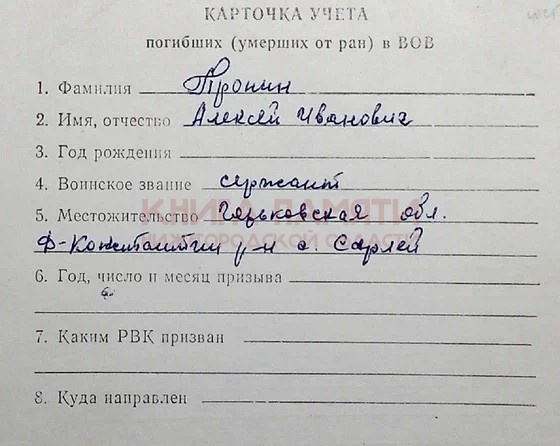 КАРТОЧКА УЧЕТА
погибших (умерших от ран) в ВОВ
1. Фамилия Пронин
2. Имя, отчество Алексей Иванович
3. Год рождения
4. Воинское звание сержант
5. Местожительство Горьковская обл.
Д-Константин р-н с. Сарлей
КНИГА ПАМЯТИ
НИЖЕГОРОДСКОЙ ОБЛАСТИ
6. Год, число и месяц призыва
7. Каким РВК призван
8. Куда направлен